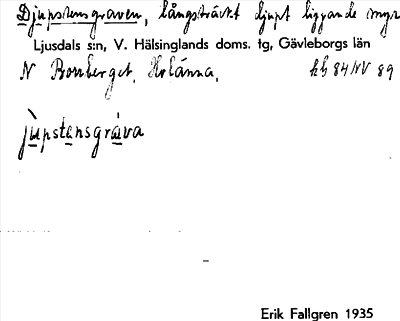 Djupstensgraven, långsträckt djupt liggande myr
Ljusdals s:n, V. Hälsinglands doms. tg, Gävleborgs län
N hb 84 NV 89
jùpstensgráva
Erik Fallgren 1935